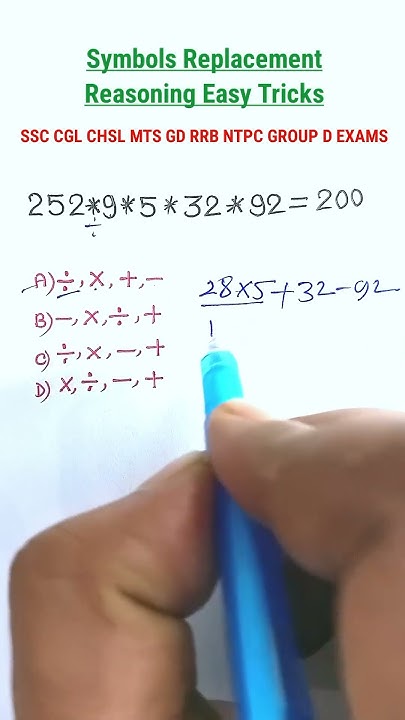 Symbols Replacement
Reasoning Easy Tricks
SSC CGL CHSL MTS GD RRB NTPC GROUP D EXAMS
252*9*5*32*92=200
÷
A) ÷, ×, +, -
28×5+32-92
1
B) -, ×, ÷, +
C) ÷, ×, -, +
D) ×, ÷, -, +